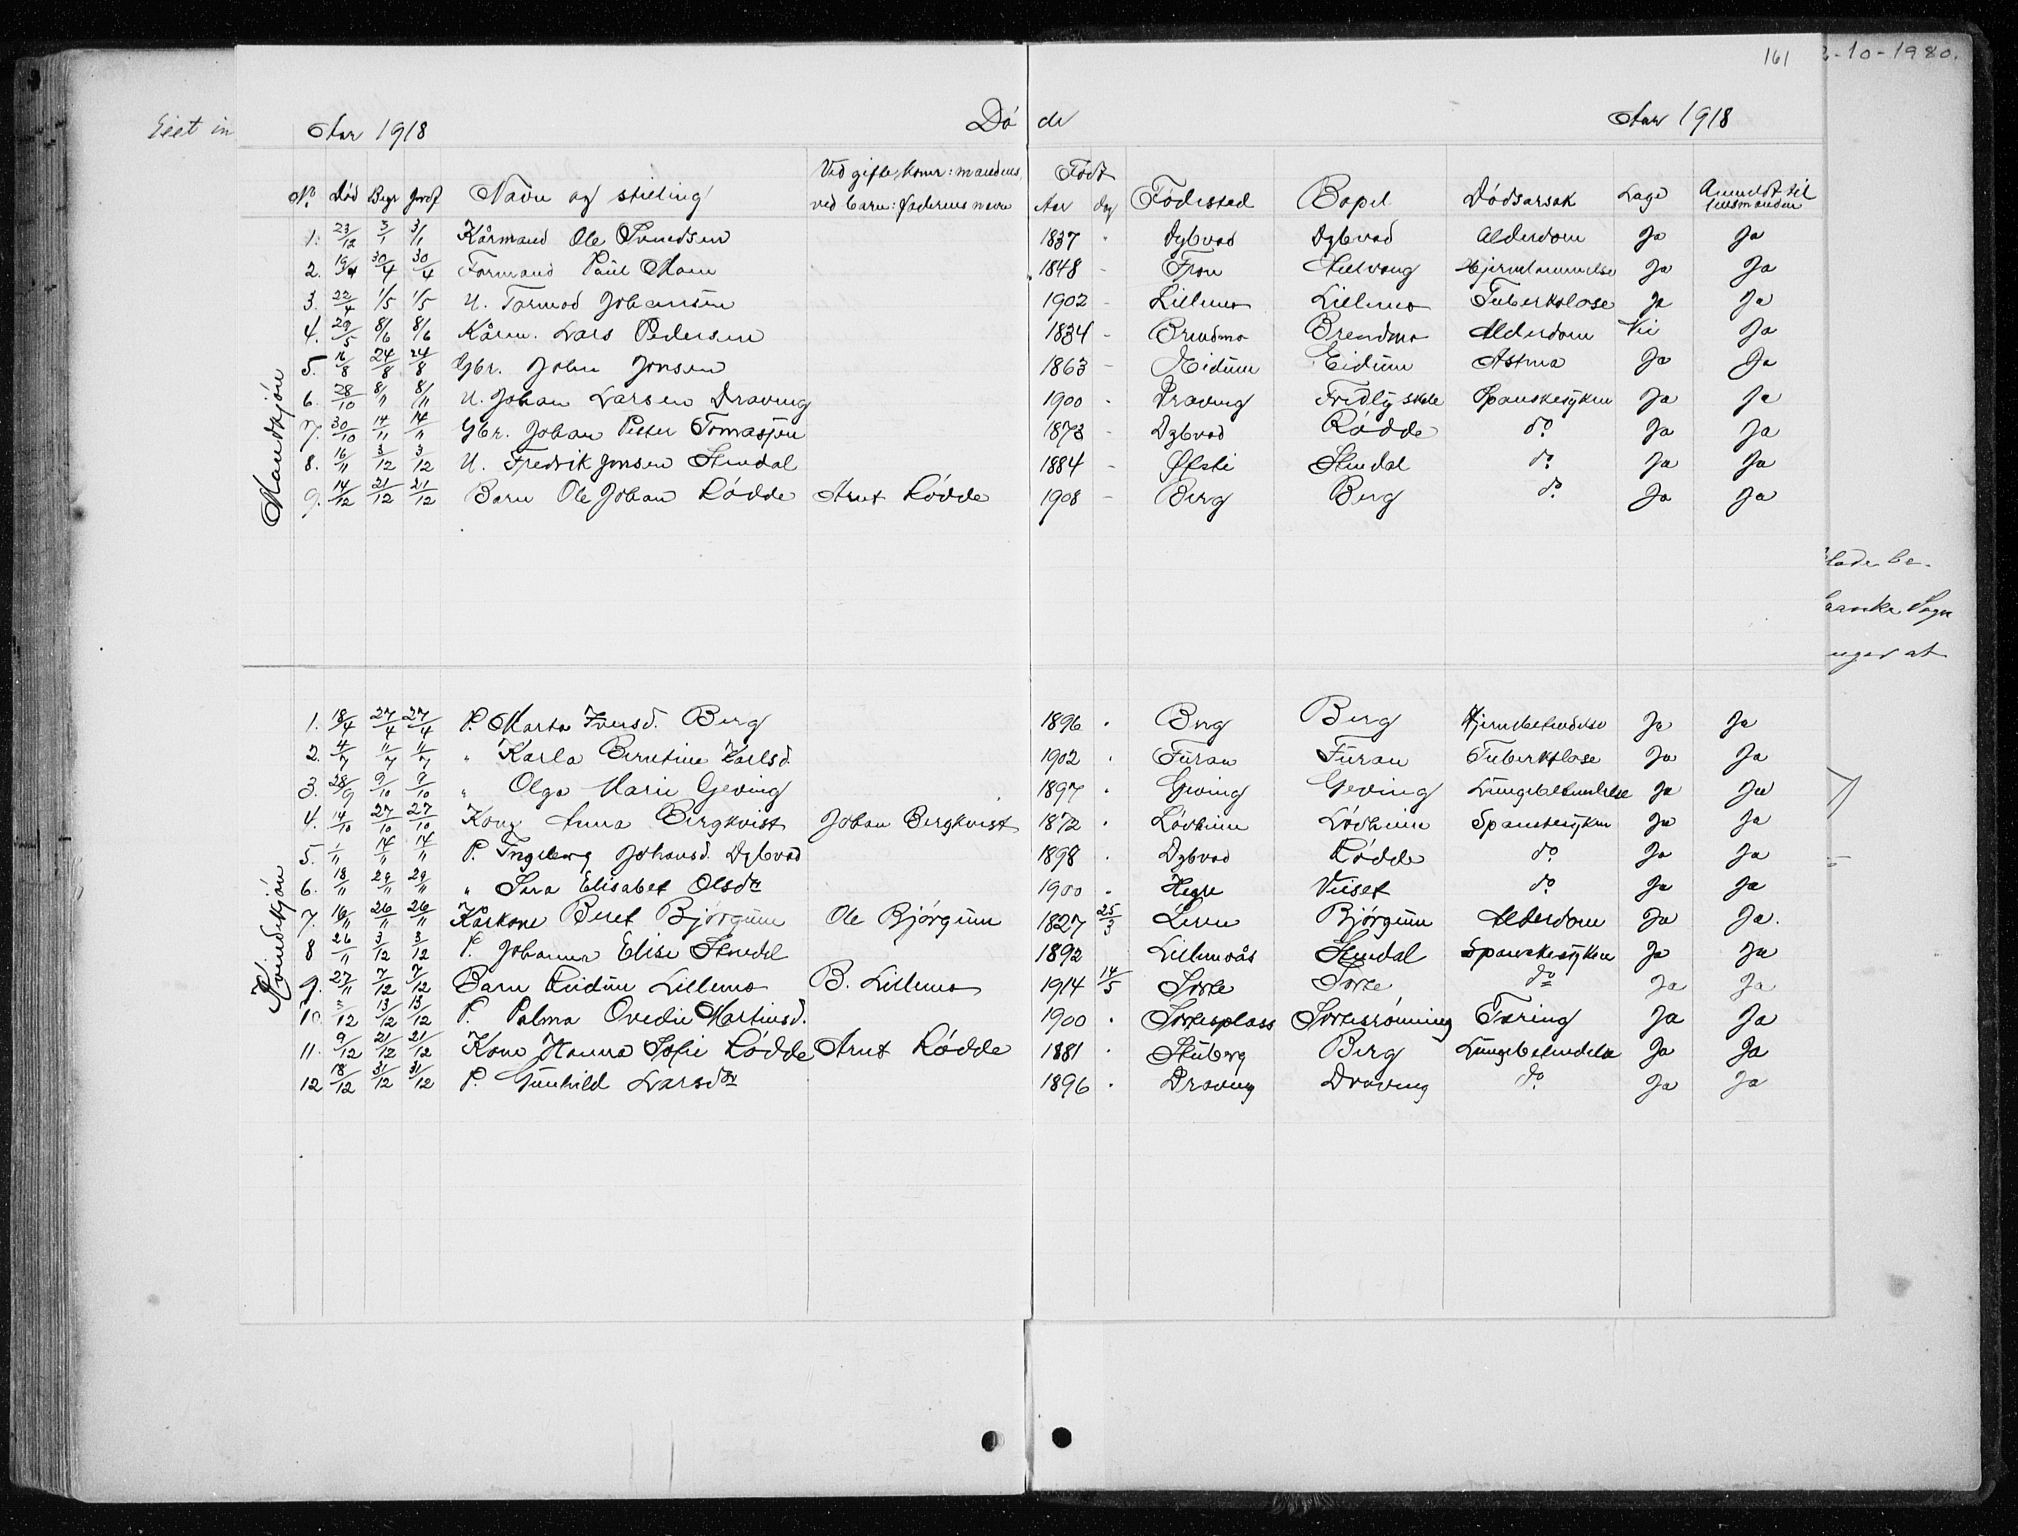 161
2-10-1980.
Aar 1918 Døde Aar 1918
No Død Begr Jordf Navn og stilling Ved gifte, koner: mandens, ved barn: faderens navn Født Aar dag Fødested Bopel Dødsarsak Læge Anmeldt til lensmanden
Mandkjøn
1. 23/12 3/1 3/1 Kårmand Ole Svendsen 1837 - Dybvad Dybvad Alderdom Ja Ja
2. 19/4 30/4 30/4 Formand Paul Moen 1848 - Fron Ja Ja
3. 22/4 1/5 1/5 U. Tormod Johansen 1902 - Lillemo Lillemo Tuberkolose Ja Ja
4. 29/5 8/6 8/6 Kårm. Lars Pedersen 1834 - Brendmo Brendmo Alderdom Nei Ja
5. 16/8 24/8 24/8 Gbr. John Jonsen 1863 - Eidum Eidum Astma Ja Ja
6. 28/10 8/11 8/11 U. Johan Larsen Draving 1900 - Draving Fridly skole Spanskesyken Ja Ja
7. 30/10 14/11 14/11 Gbr. Johan Peter Tomassen 1873 - Dybvad Rødde do. Ja Ja
8. 16/11 3/12 3/12 U. Fredrik Jonsen Stendal 1884 - Øfsti Stendal do. Ja Ja
9. 14/12 21/12 21/12 Barn Ole Johan Rødde Arnt Rødde 1908 - Berg Berg do. Ja Ja
Kvindekjøn
1. 18/4 27/4 27/4 P. Marta Iversd. Berg 1896 . Berg Berg Hjernebetendelse Ja Ja
2. 4/7 11/7 11/7 " Karla Berntine Karlsd. 1902 . Furan Furan Tuberkolose Ja Ja
3. 28/9 9/10 9/10 " Olga Marie Geving 1897 . Geving Geving Lungebetendelse Ja Ja
4. 14/10 27/10 27/10 Kone Anna Bergkvist Johan Bergkvist 1872 . Spanskesyken Ja Ja
5. 1/11 14/11 14/11 P. Ingeborg Johansd. Dybvad 1898 . Dybvad Rødde do. Ja Ja
6. 18/11 29/11 29/11 " Sara Elisabet Olsdtr 1900 . Hegre Viiset do. Ja Ja
7. 16/11 26/11 26/11 Kårkone Beret Bjørgum Ole Bjørgum 1827 25/3 Leren Bjørgum Alderdom Ja Ja.
8 26/11 3/12 3/12 P. Johanna Elise Stendal 1892 Lillemoås Stendal Spanskesyken Ja Ja
9. 27/11 7/12 7/12 Barn Reidun Lillemo B. Lillemo 1914 14/5 Sorte Sorte do Ja Ja
10. 3/12 13/12 13/12 P. Palma Ovedie Martinsd. 1900 . Sortesplass Sortesrønning Tæring Ja Ja
11. 9/12 21/12 21/12 Kone Hanna Sofie Rødde Arnt Rødde 1881 . Stuberg Berg Lungebetendelse Ja Ja
12 18/12 31/12 31/12 P. Gunhild Larsdtr 1896 . Draving Draving do. Ja Ja